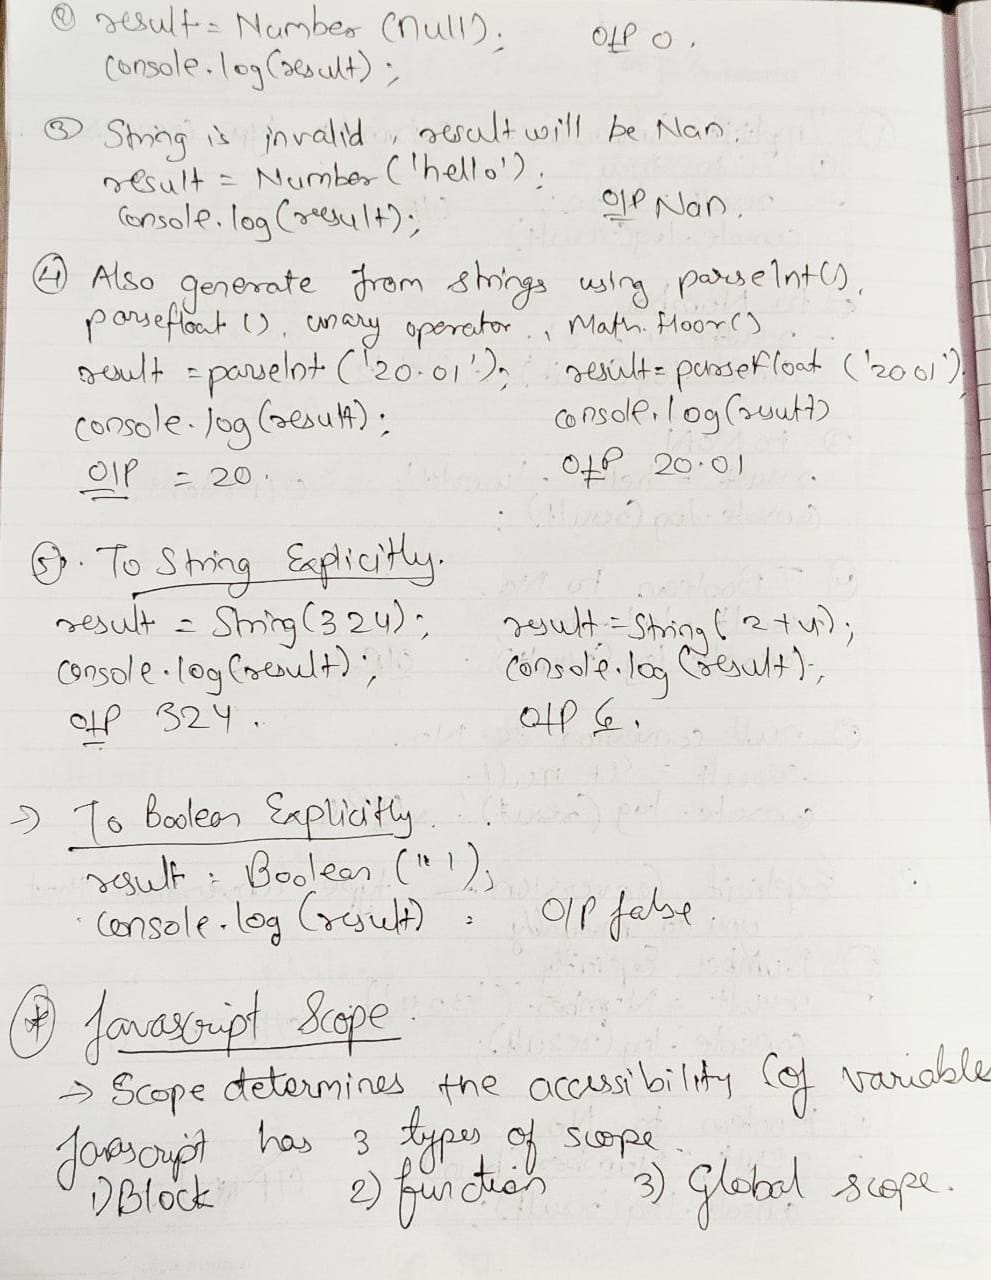 ② result = Number (null);    O/P 0.
console.log(result);
③ String is invalid, result will be Nan.
result = Number ('hello');
console.log(reesult);    O/P Nan.
④ Also generate from strings using parseInt(),
parsefloat (), unary operator, Math.floor()
result = parseInt ('20.01');    result = parseFloat ('2001');
console.log(result);    console.log(result)
O/P = 20.    O/P 20.01.
⑤. To String Explicitly.
result = String(324);    result = String(2+4);
console.log(result);    console.log(result);
O/P 324.    O/P 6.
→ To Boolean Explicitly.
result = Boolean ('' );
console.log(result);    O/P false.
* Javascript Scope.
→ Scope determines the accessibility (of variable
Javascript has 3 types of scope.
1) Block    2) function    3) Global scope.